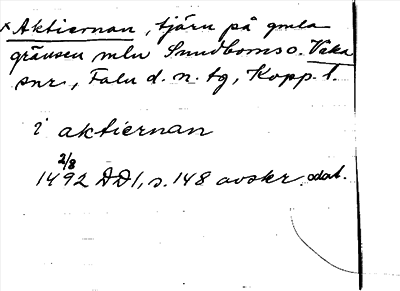 × Aktiernan, tjärn på gmla
gränsen mln Sundborns o. Vika
snr, Falu d. n. tg, Kopp. l.
i aktiernan
2/8
1492 DD1, s. 148 avskr. odat.